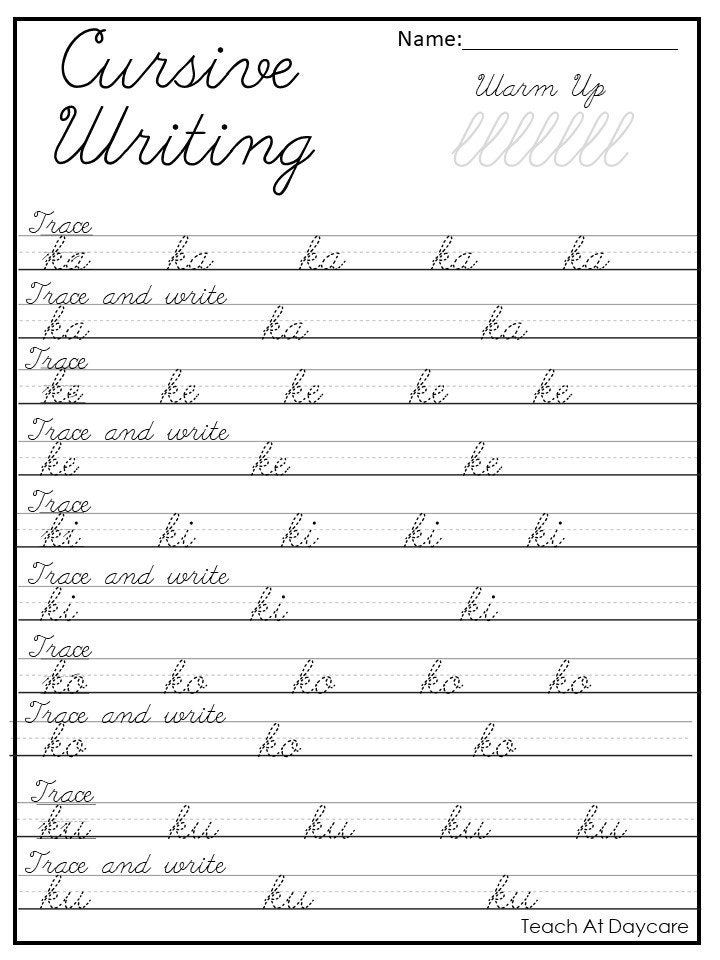 Cursive
Writing
Name:
Warm Up
lllllll
Trace
ka ka ka ka ka
Trace and write
ka ka ka
Trace
ke ke ke ke ke
Trace and write
ke ke ke
Trace
ki ki ki ki ki
Trace and write
ki ki ki
Trace
ko ko ko ko ko
Trace and write
ko ko ko
Trace
ku ku ku ku ku
Trace and write
ku ku ku
Teach At Daycare